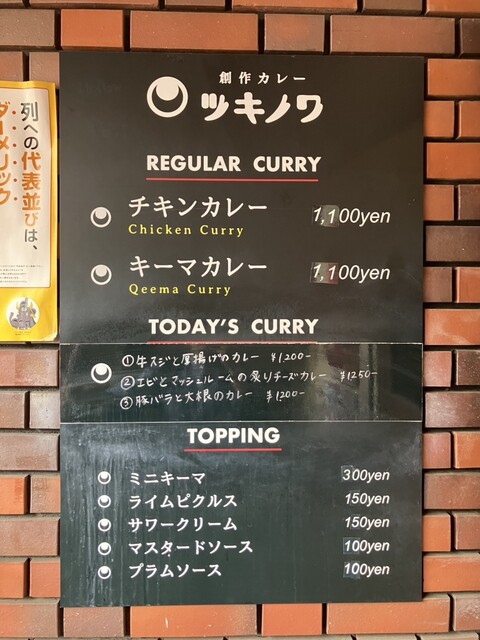 創作カレー
ツキノワ
REGULAR CURRY
チキンカレー 1,100yen
Chicken Curry
キーマカレー 1,100yen
Qeema Curry
TODAY'S CURRY
①牛スジと厚揚げのカレー ¥1200-
②エビとマッシュルームの炙りチーズカレー ¥1250-
③豚バラと大根のカレー ¥1200-
TOPPING
ミニキーマ 300yen
ライムピクルス 150yen
サワークリーム 150yen
マスタードソース 100yen
プラムソース 100yen
列への代表並びは、
ダイメリック